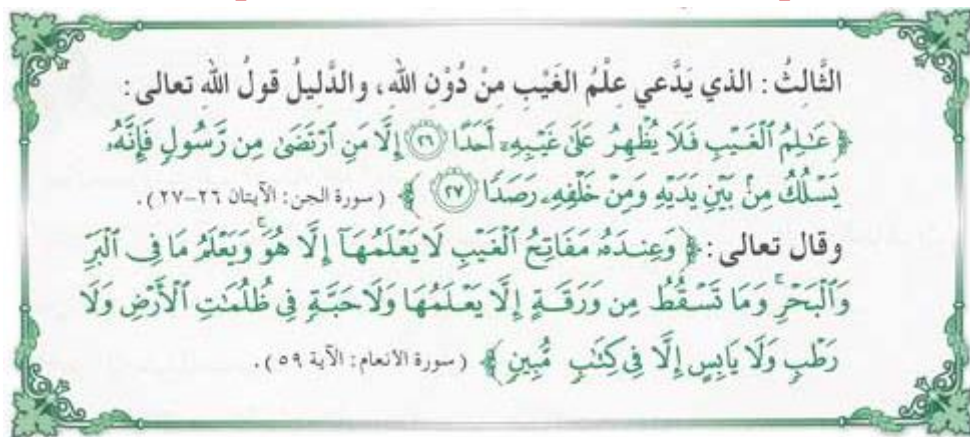 الثَّالِثُ : الذي يَدَّعي عِلْمُ الغَيْبِ مِنْ دُوْنِ اللهِ، والدَّلِيلُ قولُ اللهِ تعالى :
﴿عَٰلِمُ ٱلْغَيْبِ فَلَا يُظْهِرُ عَلَىٰ غَيْبِهِۦٓ أَحَدًا ۝٢٦ إِلَّا مَنِ ٱرْتَضَىٰ مِن رَّسُولٍ فَإِنَّهُۥ
يَسْلُكُ مِنۢ بَيْنِ يَدَيْهِ وَمِنْ خَلْفِهِۦ رَصَدًا ۝٢٧﴾ (سورة الجن: الآيتان ٢٦-٢٧).
وقال تعالى :﴿وَعِندَهُۥ مَفَاتِحُ ٱلْغَيْبِ لَا يَعْلَمُهَآ إِلَّا هُوَ ۚ وَيَعْلَمُ مَا فِى ٱلْبَرِّ
وَٱلْبَحْرِ ۚ وَمَا تَسْقُطُ مِن وَرَقَةٍ إِلَّا يَعْلَمُهَا وَلَا حَبَّةٍ فِى ظُلُمَٰتِ ٱلْأَرْضِ وَلَا
رَطْبٍ وَلَا يَابِسٍ إِلَّا فِى كِتَٰبٍ مُّبِينٍ﴾ (سورة الانعام: الآية ٥٩).